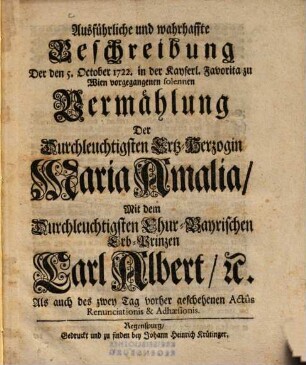 Ausführliche und wahrhaffte
Beschreibung
Der den 5. October 1722. in der Kayserl. Favorita zu
Wien vorgegangenen solennen
Vermählung
Der
Durchleuchtigsten Ertz-Hertzogin
Maria Amalia/
Mit dem
Durchleuchtigsten Chur-Bayrischen
Erb-Printzen
Carl Albert/ ꝛc.
Als auch des zwey Tag vorher geschehenen Actûs
Renunciationis & Adhæsionis.
Regenspurg/
Gedruckt und zu finden bey Johann Heinrich Krütinger.